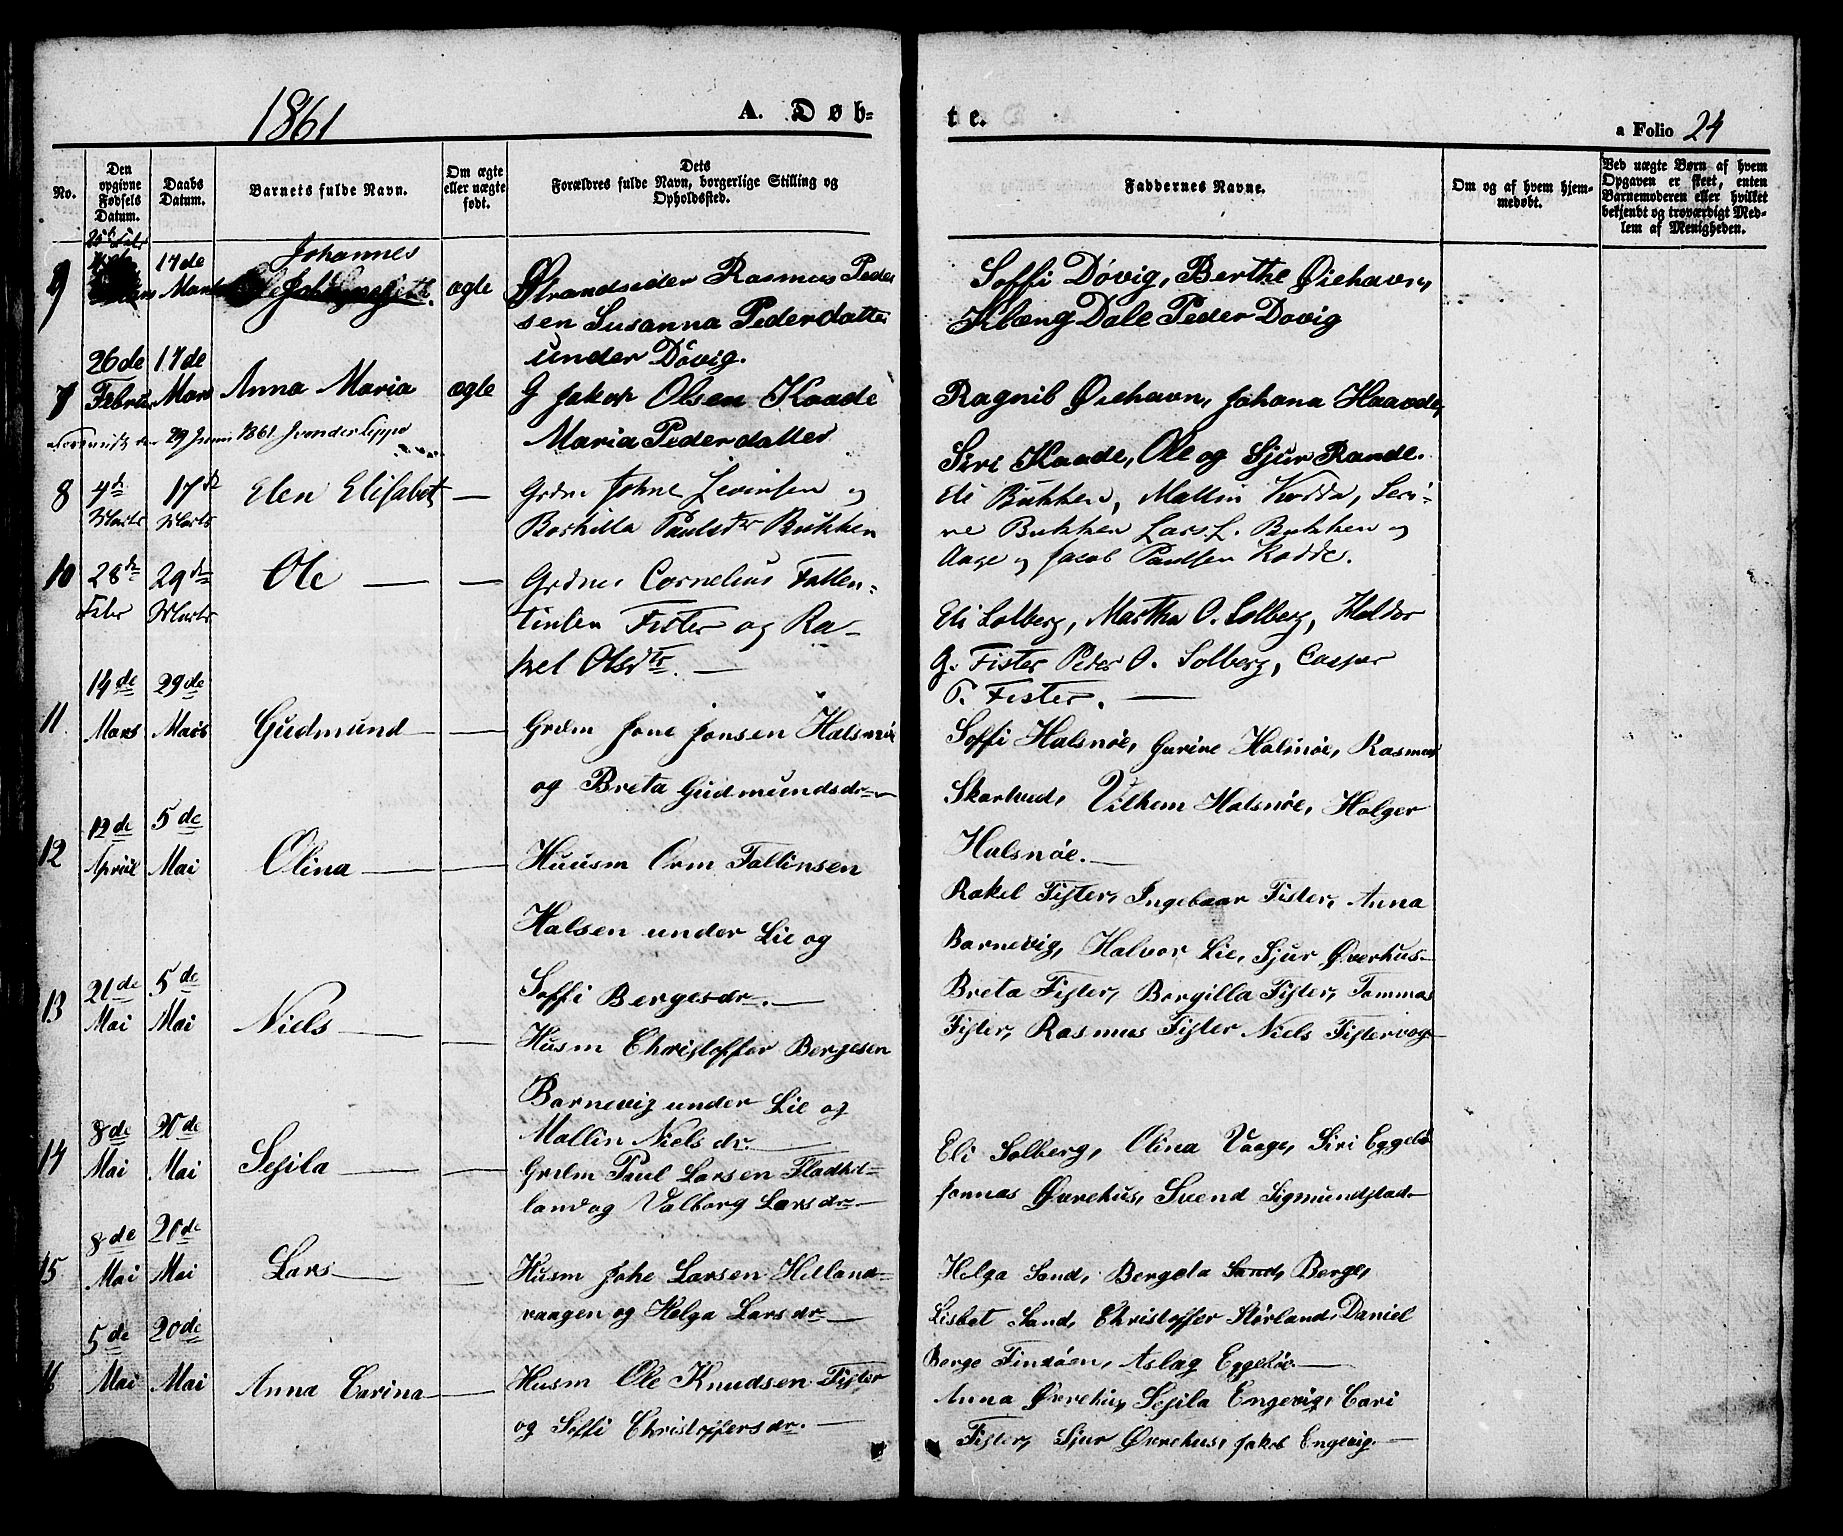 1861
A. Døb-
te.
a Folio 24
No.
Den opgivne Fødsels Datum.
Daabs Datum.
Barnets fulde Navn.
Om ægte eller uægte født.
Dets Forældres fulde Navn, borgerlige Stilling og Opholdssted.
Faddernes Navne.
Om og af hvem hjemmedøbt.
Ved uægte Børn af hvem Opgaven er skeet, enten Barnemoderen eller hvilket bekjendt og troværdigt Medlem af Menigheden.
9 25 Febr 17de Marts Johannes ægte Strandsider Rasmus Peder
sen Susanna Pederdatter
under Dóvig.
Soffi Dóvig, Berthe Øiehavn,
Dale Peder Dovig
7 26de Februar 17de Mars Anna Maria ægte G Jakop Olsen Kaade
Maria Pederdatter
29 Juni 1861
Ragnil Øiehavn, Johana Haavde,
Siri Kaade, Ole og Sjur Rande.
8 4de Marts 17de Marts Elen Elisabet — Grdm Johne Levinsen og
Borhilla Paulsdtr Bukken
Eli Bukken, Mallin Kodda, Seri-
ne Bukken Lars L. Bukken og
Aage og Jacob Paulsen Kodde.
10 28de Febr 29de Marts Ole — — Grdm Cornelius Fallen-
tinsen Fister og Ra-
kel Olsdtr. —
Eli Solberg, Martha O. Solberg, Haldor
G. Fister Peder O. Solberg, Casper
T. Fister. —
11 14de Mars 29de Mars Gudmund — — Grdm Jone Jonsen Halsnøe
og Breta Gudmundsdr—
Soffi Halsnøe, Gurine Halsnøe, Rasmus
Skartved, Vilhem Halsnøe, Holger
Halsnøe. —
12 12de April 5de Mai Olina — — Huusm Orm Fallinsen
Halsen under Lie og
Soffi Bergesdr. —
Rakel Fister, Ingebaar Fister, Anna
Barnevig, Halvor Lie, Sjur Øverhus—
13 21de Mai 5de Mai Niels — — Husm Christoffer Bergesen
Barnevig under Lie og
Mallin Nielsdr. —
Breta Fister, Borgilla Fister, Tommas
Fister, Rasmus Fister Niels Fistervog—
14 8de Mai 20de Mai Sesila — — Grdm Paul Larsen Fladhel-
land og Valborg Larsdr—
Eli Solberg, Olina Vaage, Siri Eggebø
Jonnas Øvrehus, Svend Sigmundstad—
15 8de Mai 20de Mai Lars — — Husm Johe Larsen Helland-
vaagen og Helga Larsdr—
Helga Sand, Bergeta Sand, Berge,
Lisbet Sand, Christoffer Størland, Daniel
Berge Findøen, Aslag Eggebø—
16 5de Mai 20de Mai Anna Carina — Husm Ole Knudsen Fister
og Soffi Christoffersdr. —
Anna Øvrehus, Sesila Engevig, Cari
Fister, Sjur Øvrehus, Jakob Engevig. —